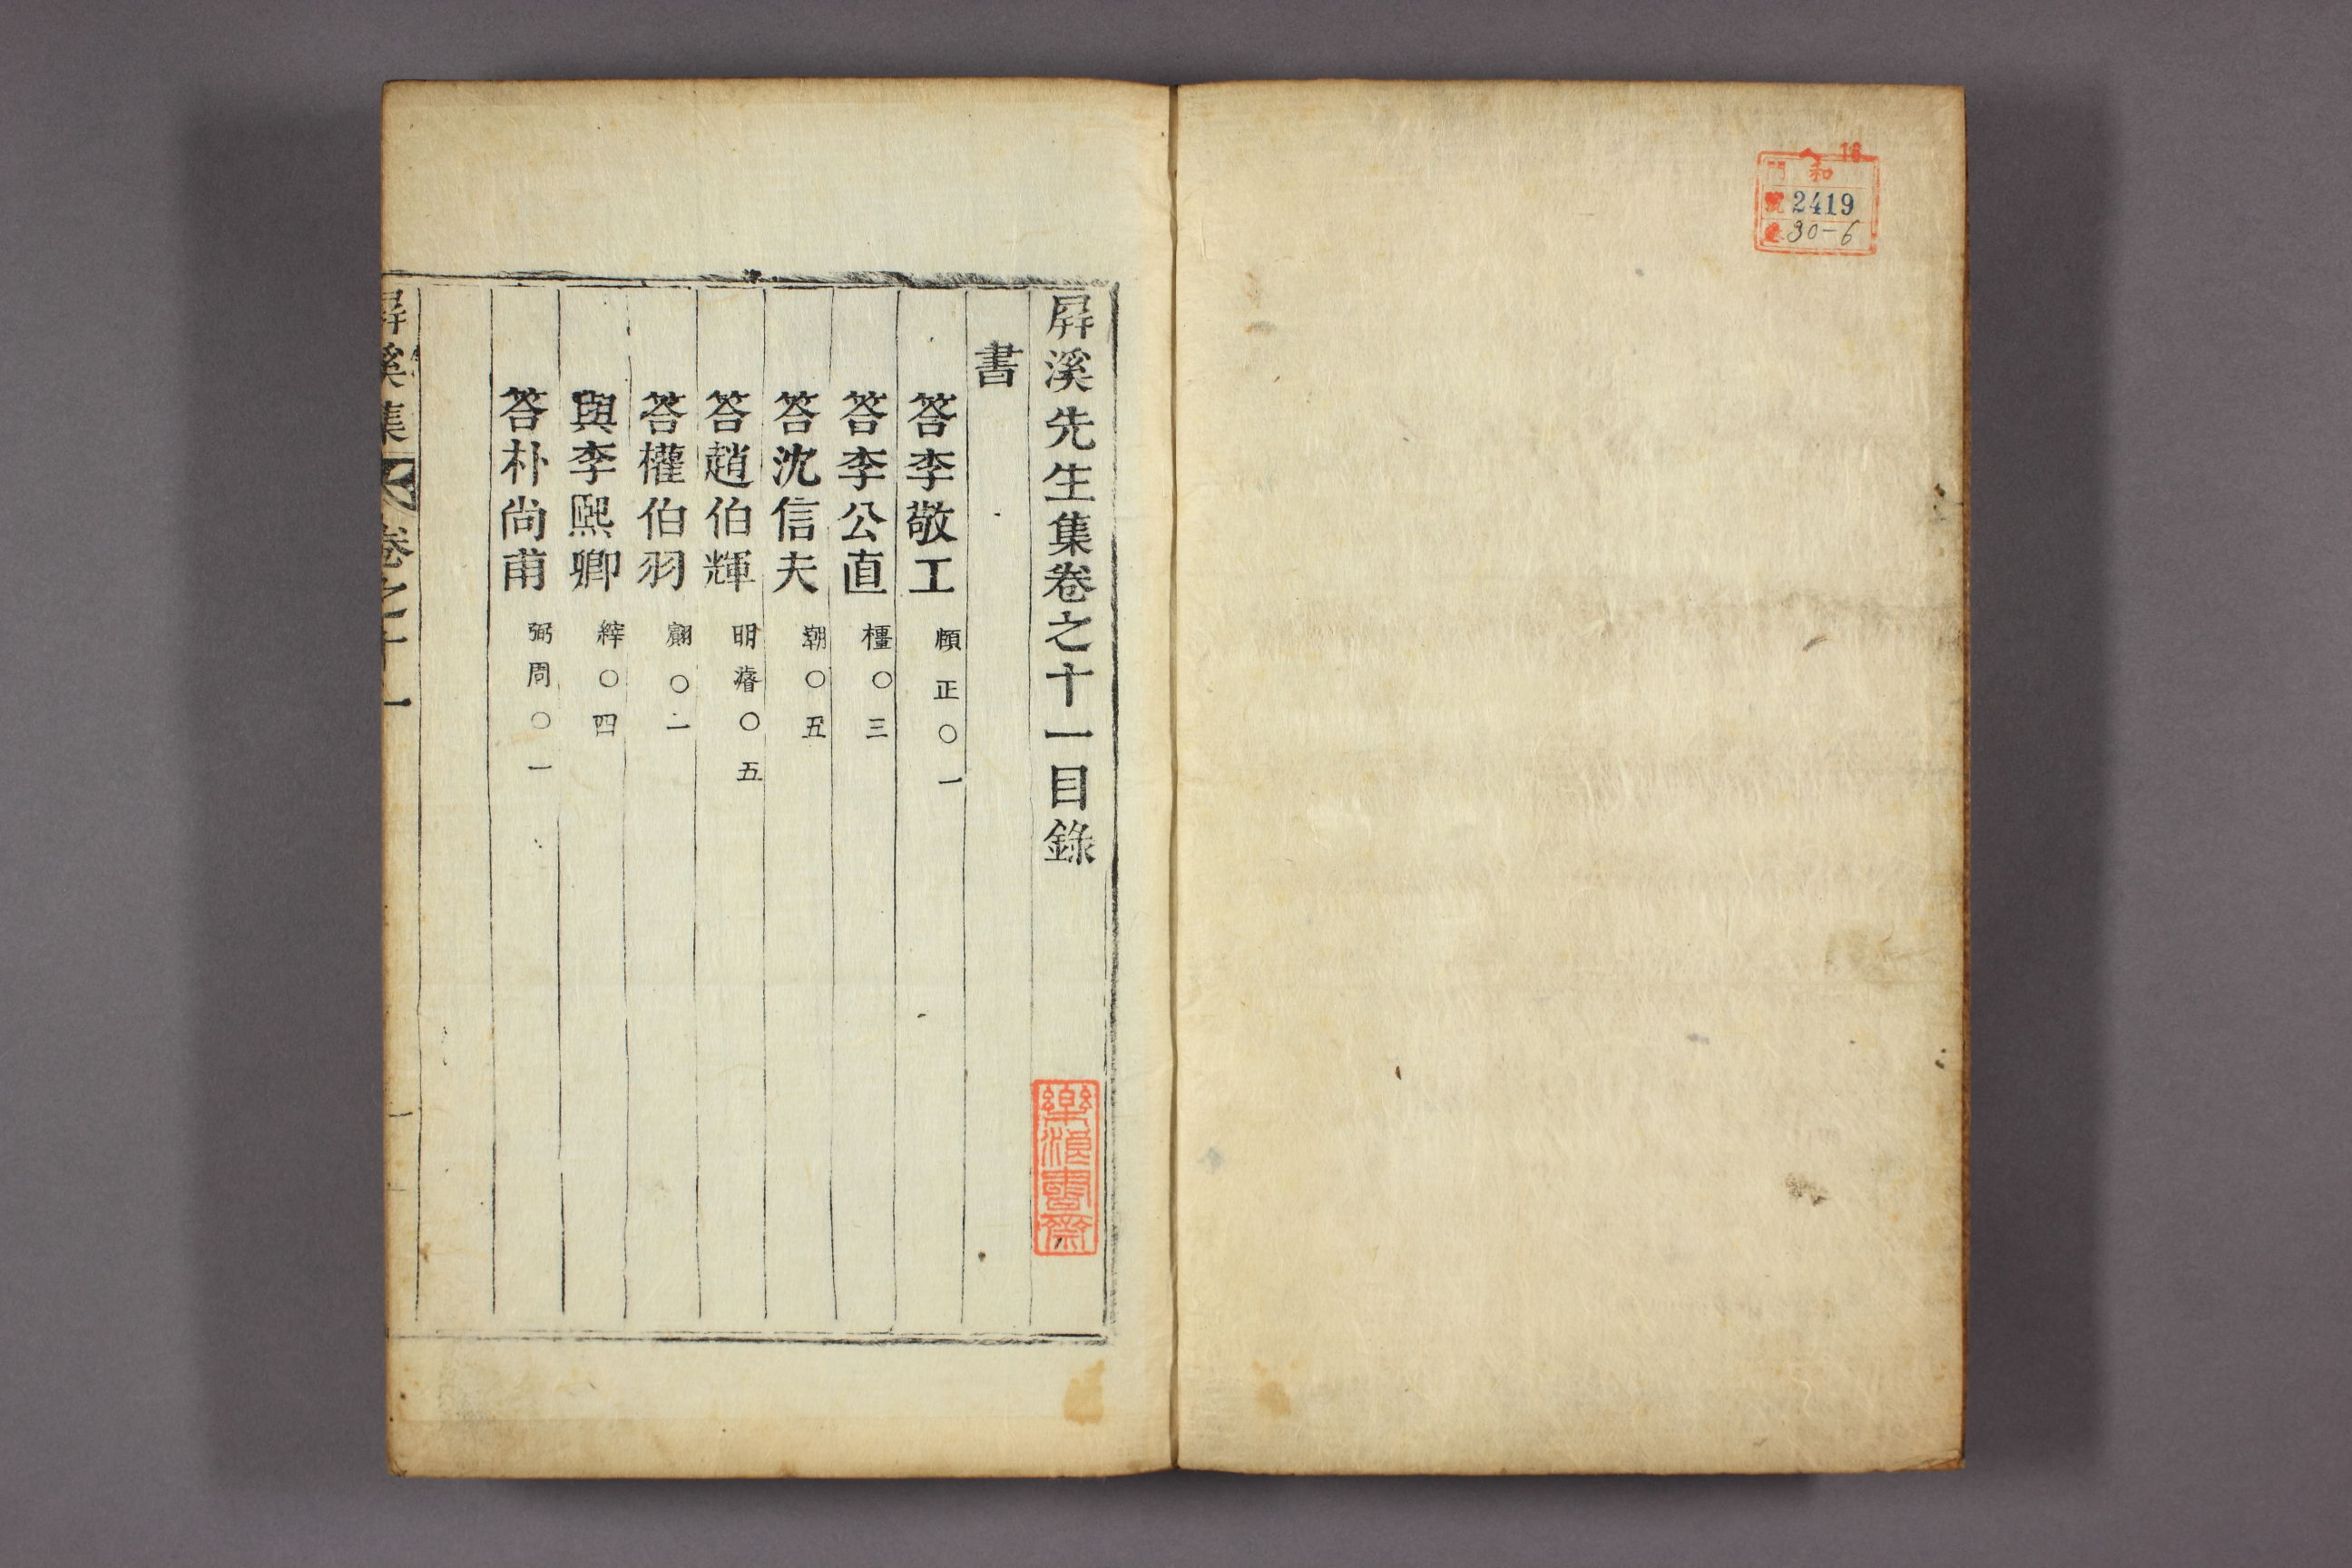 18
門 和
號 2419
30-6
屛溪先生集卷之十一目錄
書
答李敬工 頤正○一
答李公直 橿○三
答沈信夫 潮○五
答趙伯輝 明○五
答權伯羽 ○一
與李熙卿 縡○四
答朴尚甫 弼周○一
樂浪書齋
屛溪集 卷之十一 一